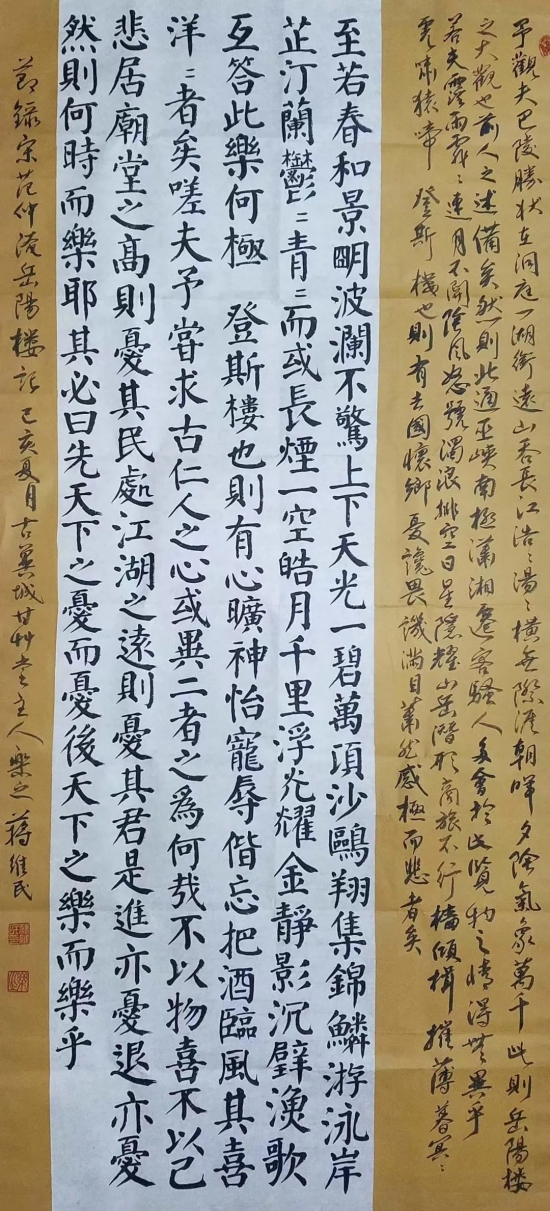 予觀夫巴陵勝狀在洞庭一湖銜遠山吞長江浩〻湯〻橫無際涯朝暉夕陰氣象萬千此則岳陽樓
之大觀也前人之述備矣然則北通巫峽南極瀟湘遷客騷人多會於此覽物之情得無異乎
若夫霪雨霏〻連月不開陰風怒號濁浪排空日星隱耀山岳潛形商旅不行檣傾楫摧薄暮冥〻
虎嘯猿啼 登斯樓也則有去國懷鄉憂讒畏譏滿目蕭然感極而悲者矣
至若春和景朙波瀾不驚上下天光一碧萬頃沙鷗翔集錦鱗游泳岸
芷汀蘭鬱〻青〻而或長煙一空皓月千里浮光耀金靜影沉璧漁歌
互答此樂何極 登斯樓也則有心曠神怡寵辱偕忘把酒臨風其喜
洋〻者矣嗟夫予嘗求古仁人之心或異二者之爲何哉不以物喜不以己
悲居廟堂之高則憂其民處江湖之遠則憂其君是進亦憂退亦憂
然則何時而樂耶其必曰先天下之憂而憂後天下之樂而樂乎
節錄宋范仲淹岳陽樓記 己亥夏月古冀城甘艸堂主人樂之蔣維民